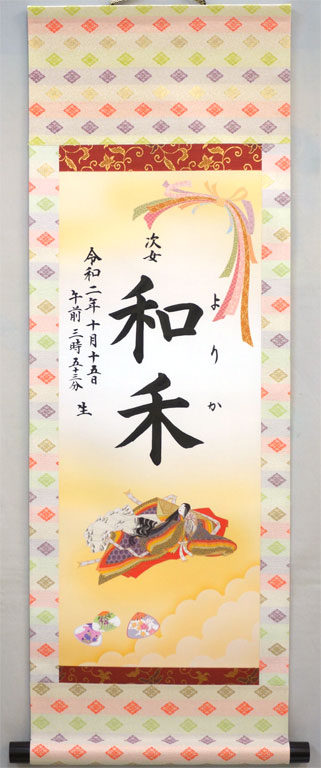 よりか
次女
和禾
令和二年十月十五日
午前三時五十三分
生